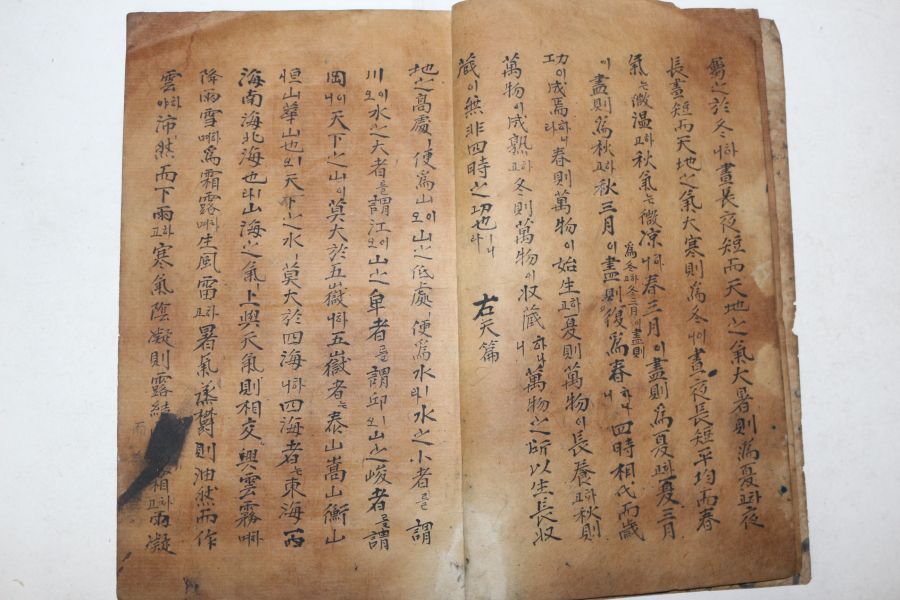 屬之於冬하니晝長夜短而天地之氣大暑則爲夏하고夜
長晝短而天地之氣大寒則爲冬하니晝夜長短平均而春
氣는微溫하고秋氣는微凉하니春三月이盡則爲夏하고夏三月
이盡則爲秋하고秋三月이盡則爲冬하고冬三月이盡則復爲春하나니四時相代而歲
功이成焉하니라春則萬物이始生하고夏則萬物이長養하고秋則
萬物이成熟하고冬則萬物이收藏하나니萬物之所以生長收
藏이無非四時之功也니라 右天篇
地之高處ㅣ便爲山이오山之低處ㅣ便爲水라水之小者를謂
川이오水之大者를謂江이오山之卑者를謂邱오山之峻者를謂
岡이니天下之山이莫大於五嶽하니五嶽者는泰山嵩山衡山
恒山華山也오天下之水ㅣ莫大於四海하니四海者는東海西
海南海北海也라山海之氣上與天氣則相交興雲霧하며
降雨雪하며爲霜露하며生風雷라暑氣蒸欝則油然而作
雲하야沛然而下雨하고寒氣陰凝則露結 霜하고雨凝